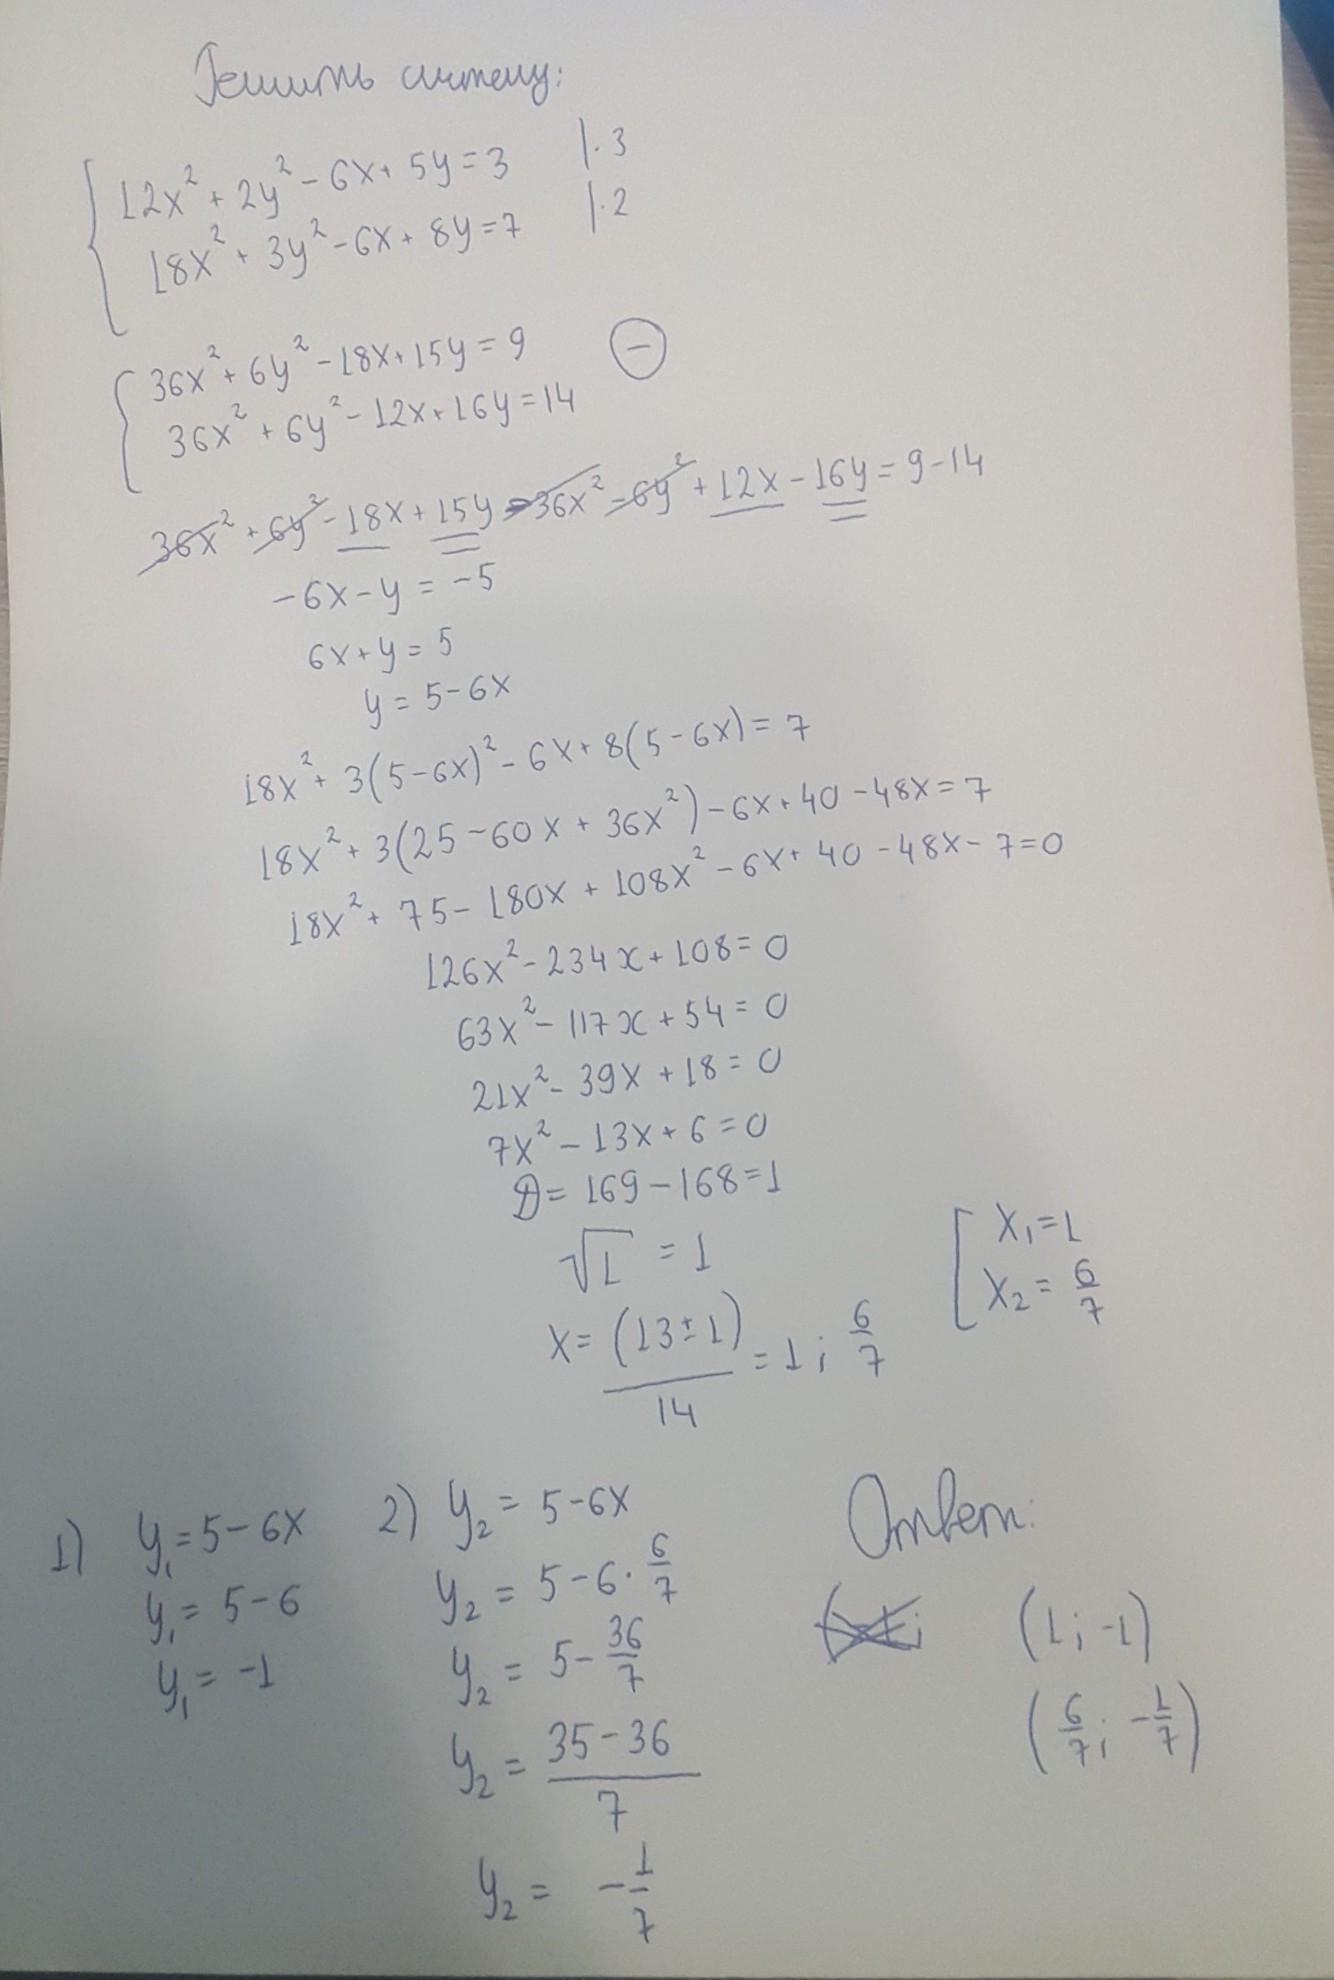 Решить систему:
12x² + 2y² - 6x + 5y = 3 |·3
18x² + 3y² - 6x + 8y = 7 |·2
36x² + 6y² - 18x + 15y = 9 (-)
36x² + 6y² - 12x + 16y = 14
36x² + 6y² - 18x + 15y - 36x² - 6y² + 12x - 16y = 9 - 14
-6x - y = -5
6x + y = 5
y = 5 - 6x
18x² + 3(5 - 6x)² - 6x + 8(5 - 6x) = 7
18x² + 3(25 - 60x + 36x²) - 6x + 40 - 48x = 7
18x² + 75 - 180x + 108x² - 6x + 40 - 48x - 7 = 0
126x² - 234x + 108 = 0
63x² - 117x + 54 = 0
21x² - 39x + 18 = 0
7x² - 13x + 6 = 0
D = 169 - 168 = 1
√1 = 1
x = (13 ± 1)/14 = 1; 6/7
[ x₁ = 1
x₂ = 6/7
1) y₁ = 5 - 6x
y₁ = 5 - 6
y₁ = -1
2) y₂ = 5 - 6x
y₂ = 5 - 6 · 6/7
y₂ = 5 - 36/7
y₂ = (35 - 36)/7
y₂ = -1/7
Ответ:
(1; -1)
(6/7; -1/7)